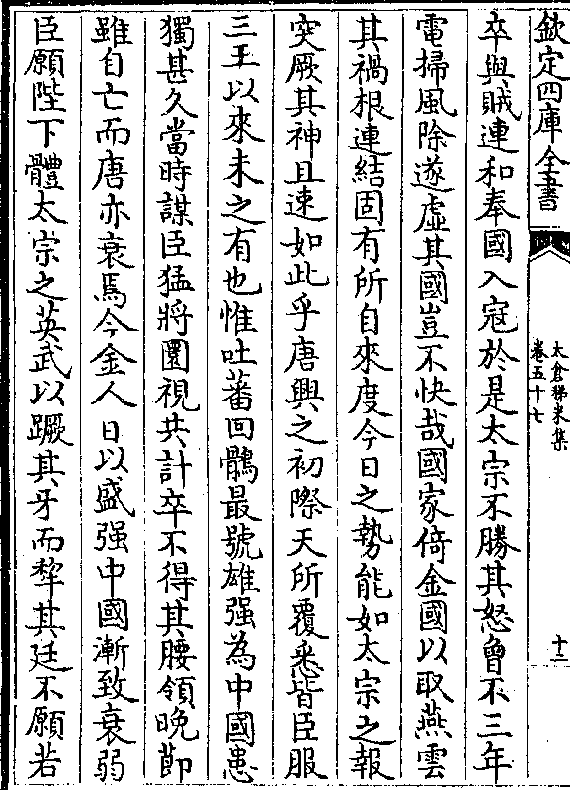 欽定四庫全書
太倉稊米集
卷五十七
十二
卒與賊連和奉國入寇於是太宗不勝其怒曾不三年
電掃風除遂虛其國豈不快哉國家倚金國以取燕雲
其禍根連結固有所自來度今日之勢能如太宗之報
突厥其神且速如此乎唐興之初際天所覆悉皆臣服
三王以來未之有也惟吐蕃回鶻最號雄强為中國患
獨甚久當時謀臣猛將圜視共計卒不得其腰領晚節
雖自亡而唐亦衰焉今金人日以盛强中國漸致衰弱
臣願陛下體太宗之英武以蹶其牙而犂其廷不願若